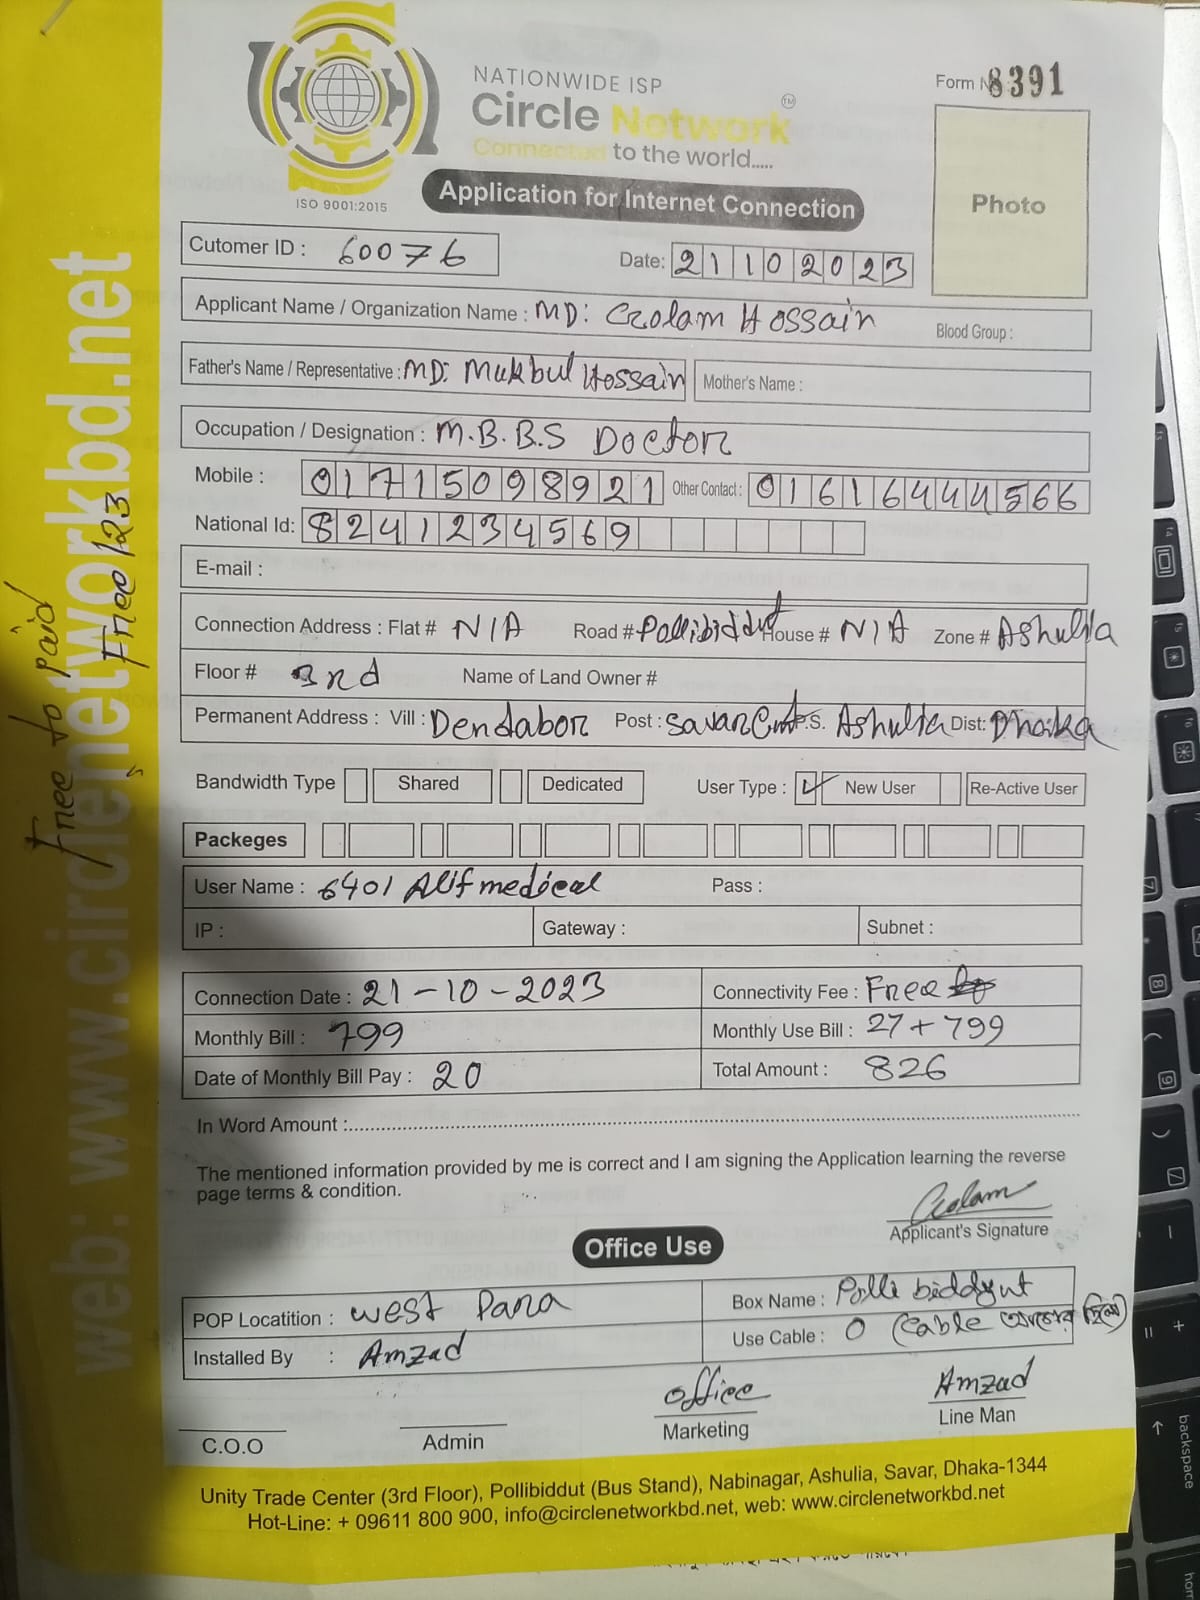 NATIONWIDE ISP
Circle Network TM
Connected to the world.....
ISO 9001:2015
Form N 8391
Photo
Application for Internet Connection
Cutomer ID : 60076
Date: 21102023
Applicant Name / Organization Name : MD: Golam Hossain Blood Group :
Father's Name / Representative : MD: Mukbul Hossain Mother's Name :
Occupation / Designation : M.B.B.S Doctor
Mobile : 01715098921 Other Contact : 01616444566
National Id: 8241234569
E-mail :
Connection Address : Flat # N/A Road # Pollibiddut House # N/A Zone # Ashulia
Floor # 3rd Name of Land Owner #
Permanent Address : Vill : Dendabor Post : Savar Cant P.S. Ashulia Dist: Dhaka
Bandwidth Type Shared Dedicated User Type : ✓ New User Re-Active User
Packeges
User Name : 6401 Alif medical Pass :
IP : Gateway : Subnet :
Connection Date : 21-10-2023 Connectivity Fee : Free
Monthly Bill : 799 Monthly Use Bill : 27+799
Date of Monthly Bill Pay : 20 Total Amount : 826
In Word Amount :
The mentioned information provided by me is correct and I am signing the Application learning the reverse
page terms & condition.
Golam
Applicant's Signature
Office Use
POP Locatition : West Para Box Name : Polli biddyut
Installed By : Amzad Use Cable : 0 (Cable আগের ছিল)
Office Amzad
C.O.O Admin Marketing Line Man
Unity Trade Center (3rd Floor), Pollibiddut (Bus Stand), Nabinagar, Ashulia, Savar, Dhaka-1344
Hot-Line: + 09611 800 900, info@circlenetworkbd.net, web: www.circlenetworkbd.net
web: www.circlenetworkbd.net
Free to paid
Free/23
backspace